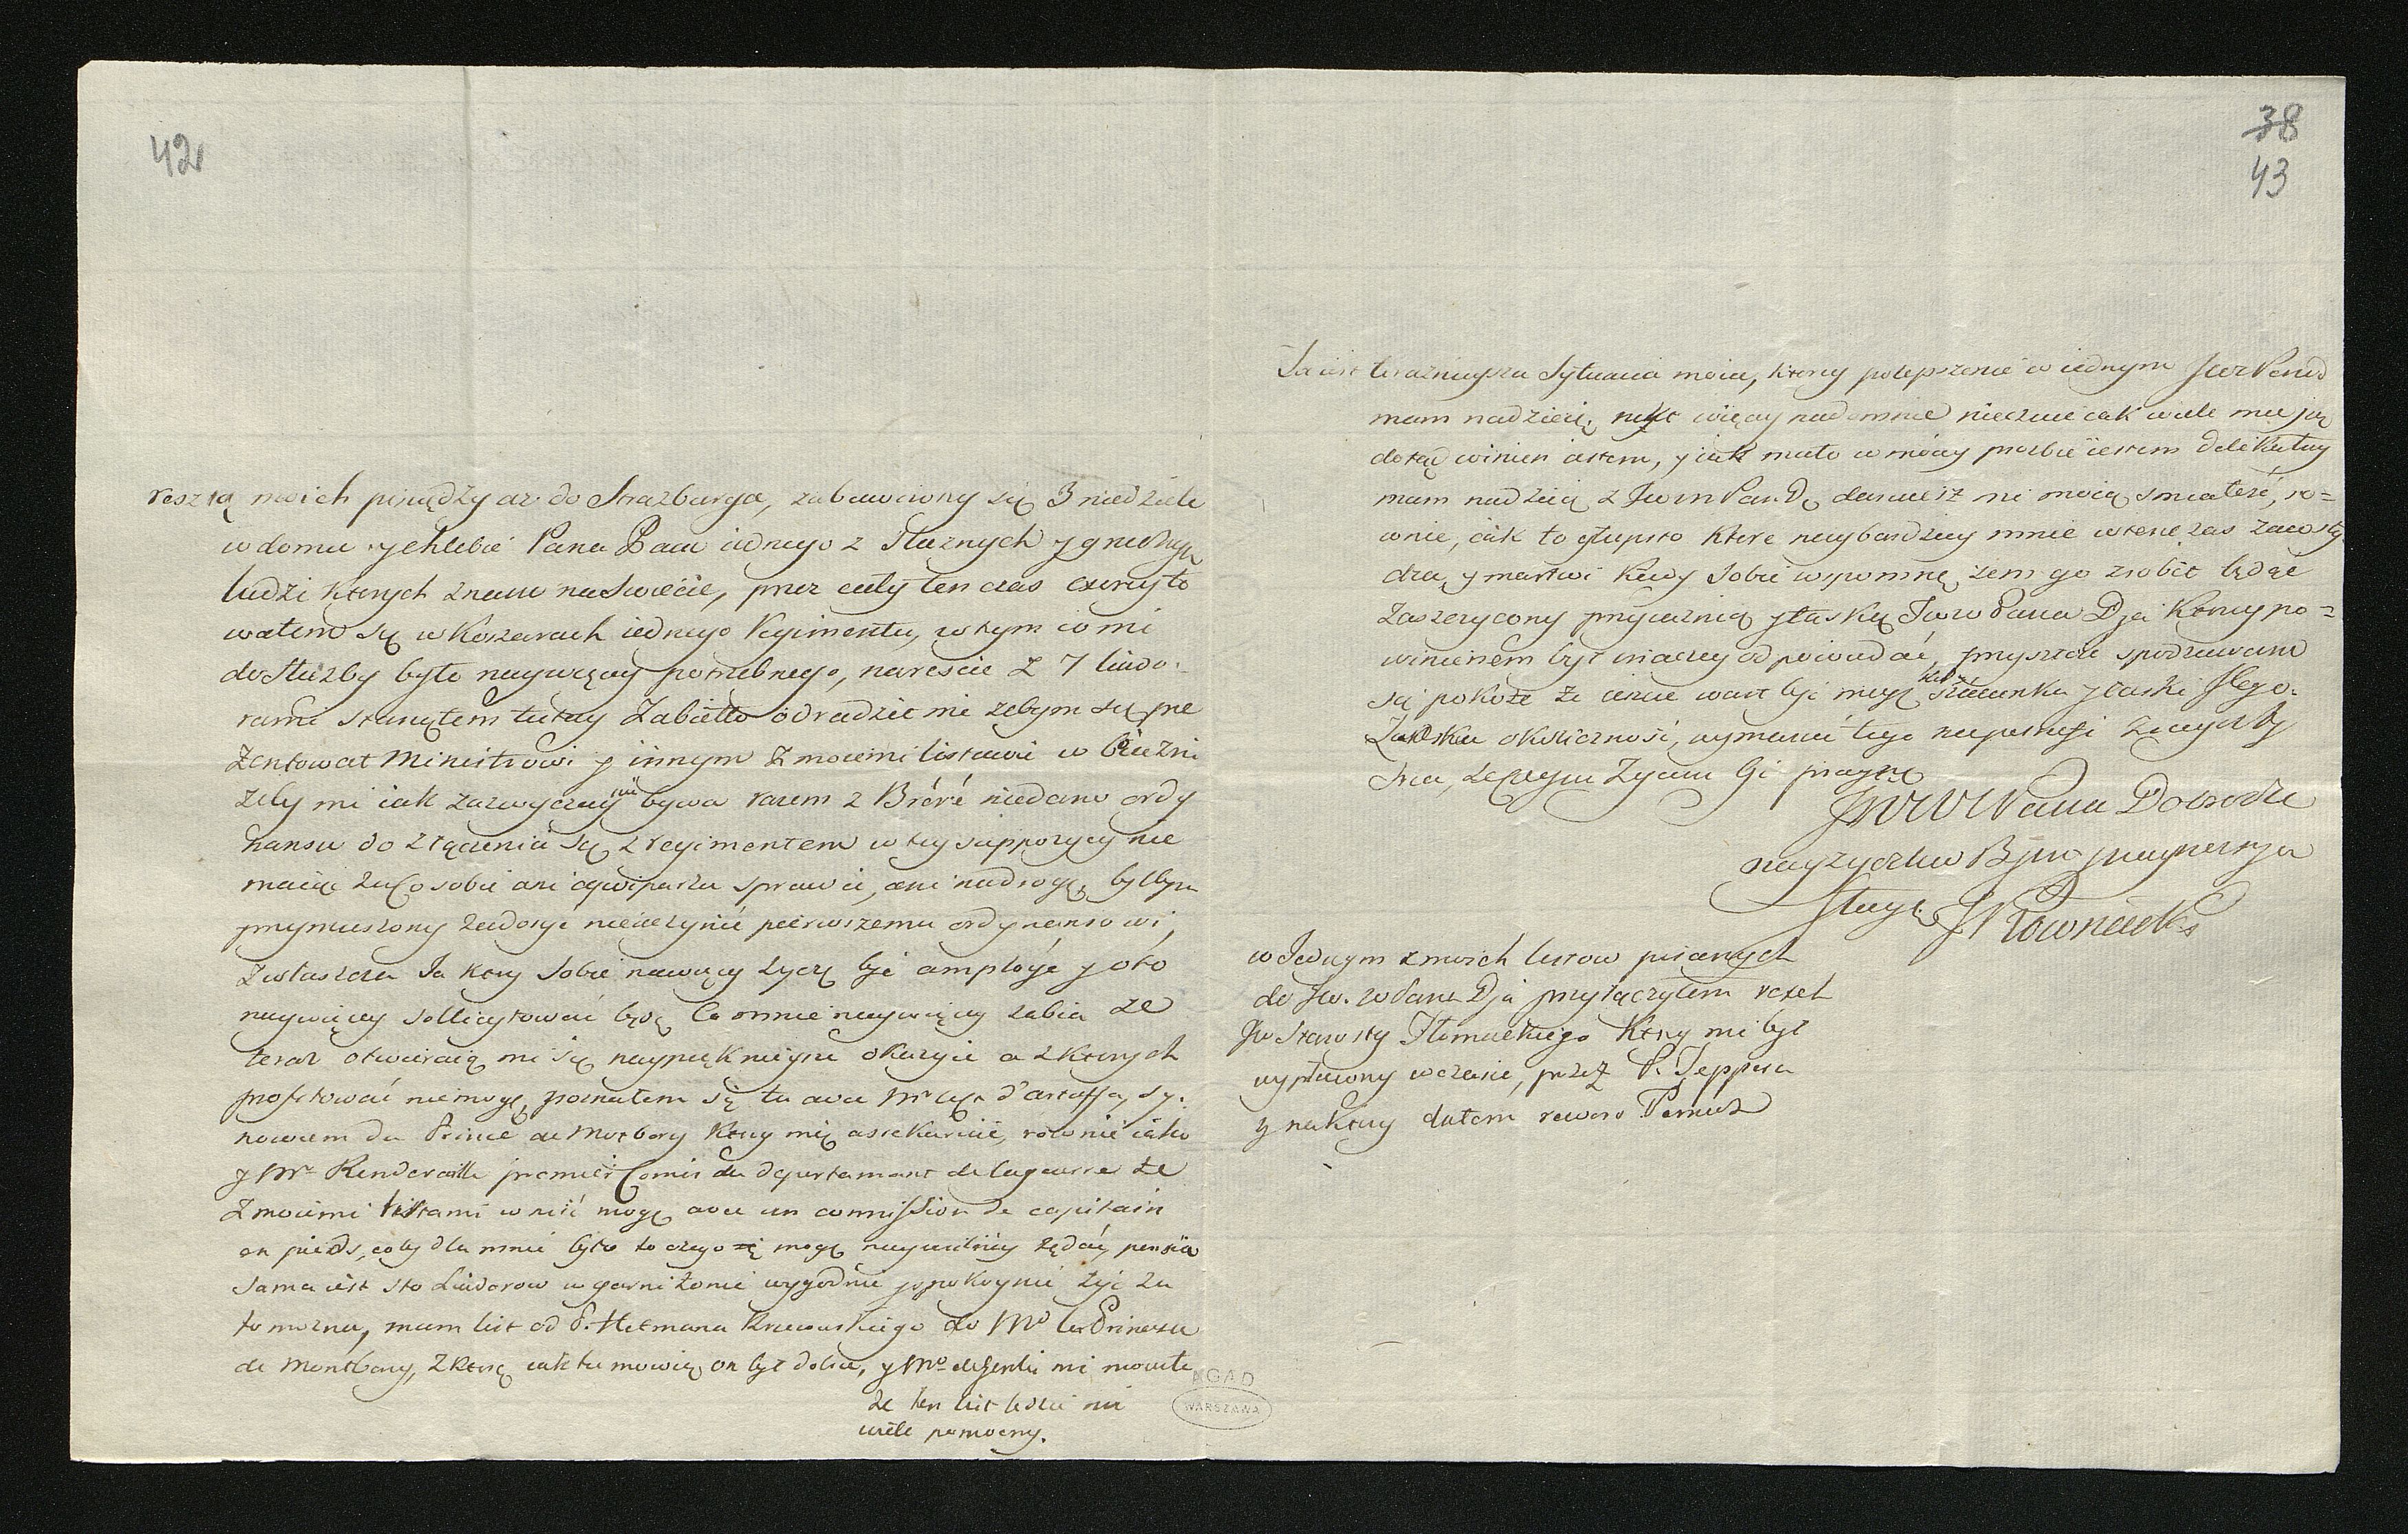 42
resztą moich pinędzy az do Strazburga, zabawiony się 3 niedziele
w domu y chlebie Pana Paca iednego z słusznych y
ludzi ktorych znam na Swiecie, przez cały ten czas exercyto
wałem się w Koszarach iednego Regimentu, w tym co mi
do Służby było naywięcy potrzebnego, nareście z 7 luido-
rami stanąłem tutay Zabiełło odradził mi zebym się pre
zentował Ministrowi y innym z moiemi listami w
zeby mi iak zazwyczay bywa razem z Brévé niedano ordy
nansu do złączenia się z regimentem w tey suppozycyi nie
maiąc za co sobie ani equipażu sprawić, ani na drogę, byłbym
przymuszony zadosyc nieuczynić pierwszemu ordynansowi,
zwłaszcza Ja ktory Sobie naywięcy życzę być amployé y oto
naywięcy sollicytować będę Co mnie naywięcy zabia ze
teraz otwieraią mi się naypięknieysze okazyie a z ktorych
profitować niemogę, poznałem się tu avec Mr
nowiem du Prince de Montbary ktory mię assekuruie, rownie iako
y Mr Renderaille premier Comis du departamant de la guerre ze
z moiemi listami wniść mogę avec un commission de capitain
en pieds, coby dla mnie było to czego mogę naywilniey żądać, pensia
sama iest sto Luidorow w garnizonie wygodnie y spokoynie żyć za
to mozna, mam list od P. Hetmana Krzewuskiego do Md la Princesse
de Montbary, z ktorą iak tu mowią on był dobrze, y Md de Genlis mi mowiła
ze ten list będzie mi
wiele pomocny.
AGAD
WARSZAWA
38
43
Ta iest teraznieysza Sytuacia moia, ktorey polepszenie w iednym
mam nadzieię, nikt więcy nademnie nieczuie iak wiele mu ią
dotąd winien iestem, y iak mało w moiey prozbie iestem delikatny
mam nadzieię z Jwm Pan D. daruiesz mi moią smiałość, ro-
wnie, iak to głupstwo ktore naybardziey mnie wtenczas zawsty
dza, y martwi kiedy Sobie wspomnę, zem go zrobił będąc
zaszczycony przyiaznią y łaską Jww Pana Dja ktorey po-
winienem był inaczey odpowiadać, przyszłość spodziewam
się pokoże ze iescze wart być mogę szacunku y łaski Jego.
Ludzka okoliczność, wymawić tego
stwa, ktorym Zycia być pragnę
JWWWPana Dobrodz
nayzyczliw Bym y naynizszym
Sługą
w Jednym z moich listow pisanych
do Jw. W Pana Dja przyłączyłem rexet
Jw Starosty Tłomackiego ktory mi był
wypłacony wczasie, przez P. Teppera
y na ktory dałem rewers